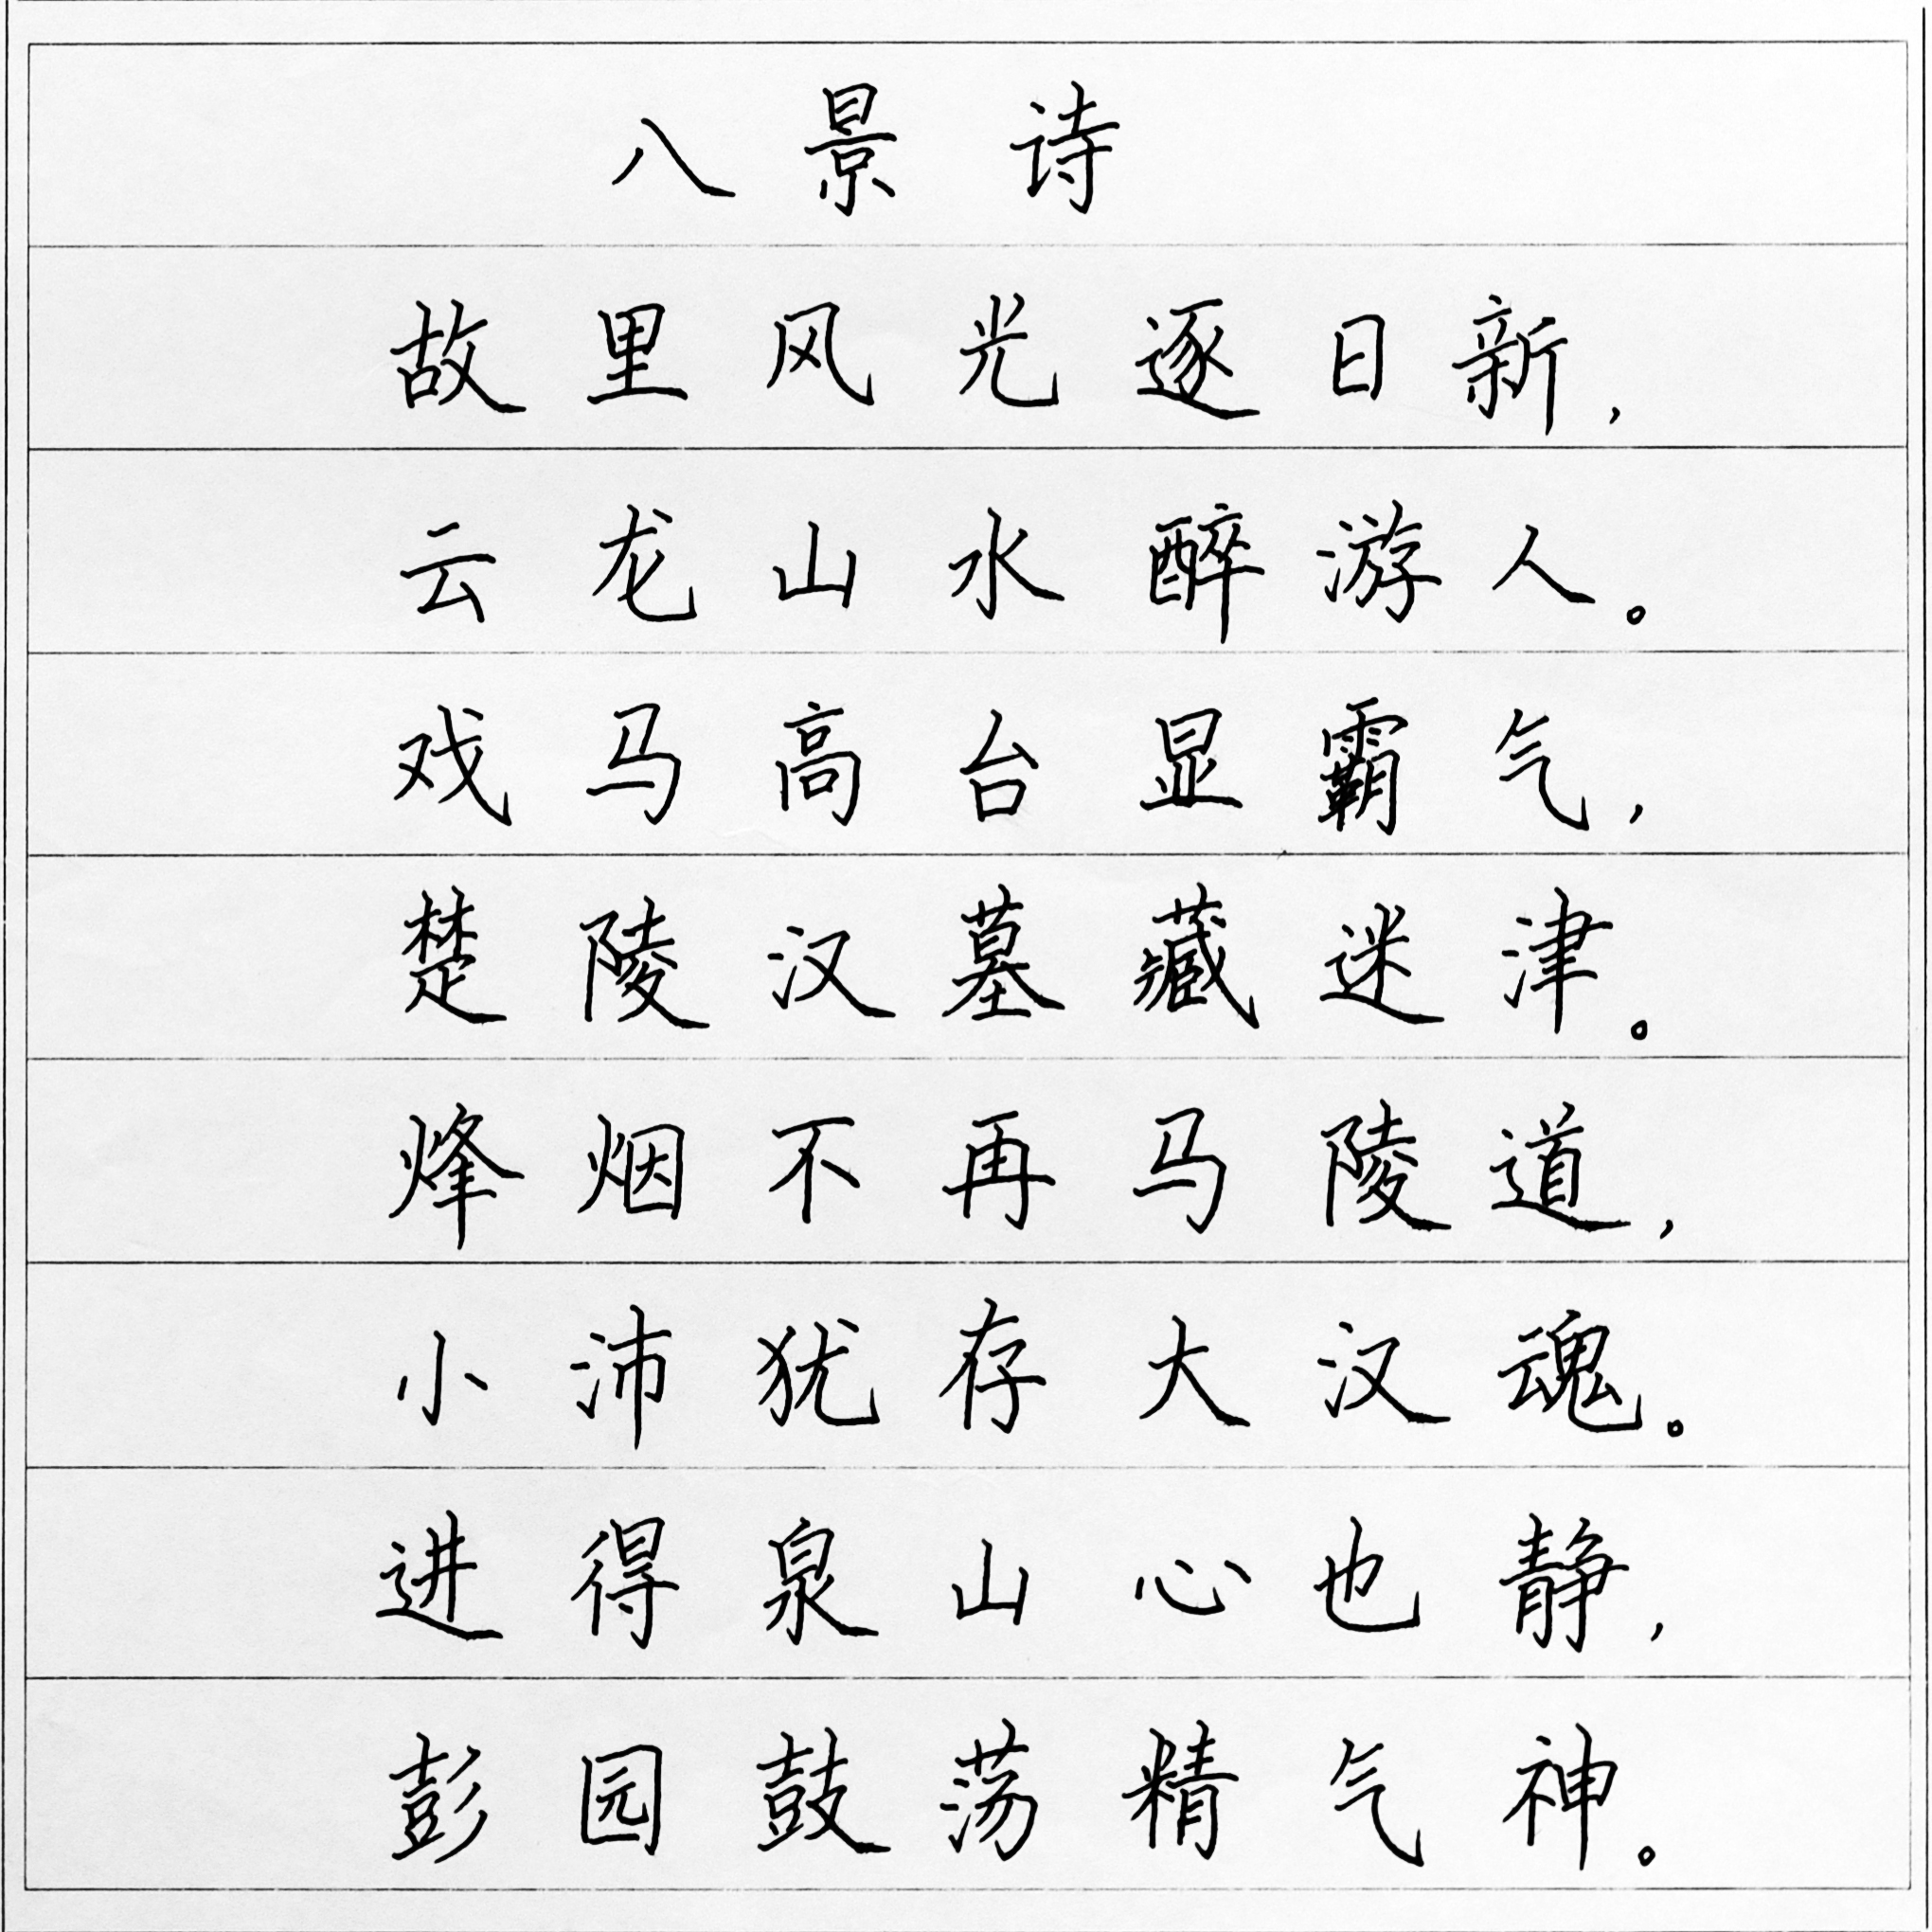 八景诗
故里风光逐日新，
云龙山水醉游人。
戏马高台显霸气，
楚陵汉墓藏迷津。
烽烟不再马陵道，
小沛犹存大汉魂。
进得泉山心也静，
彭园鼓荡精气神。